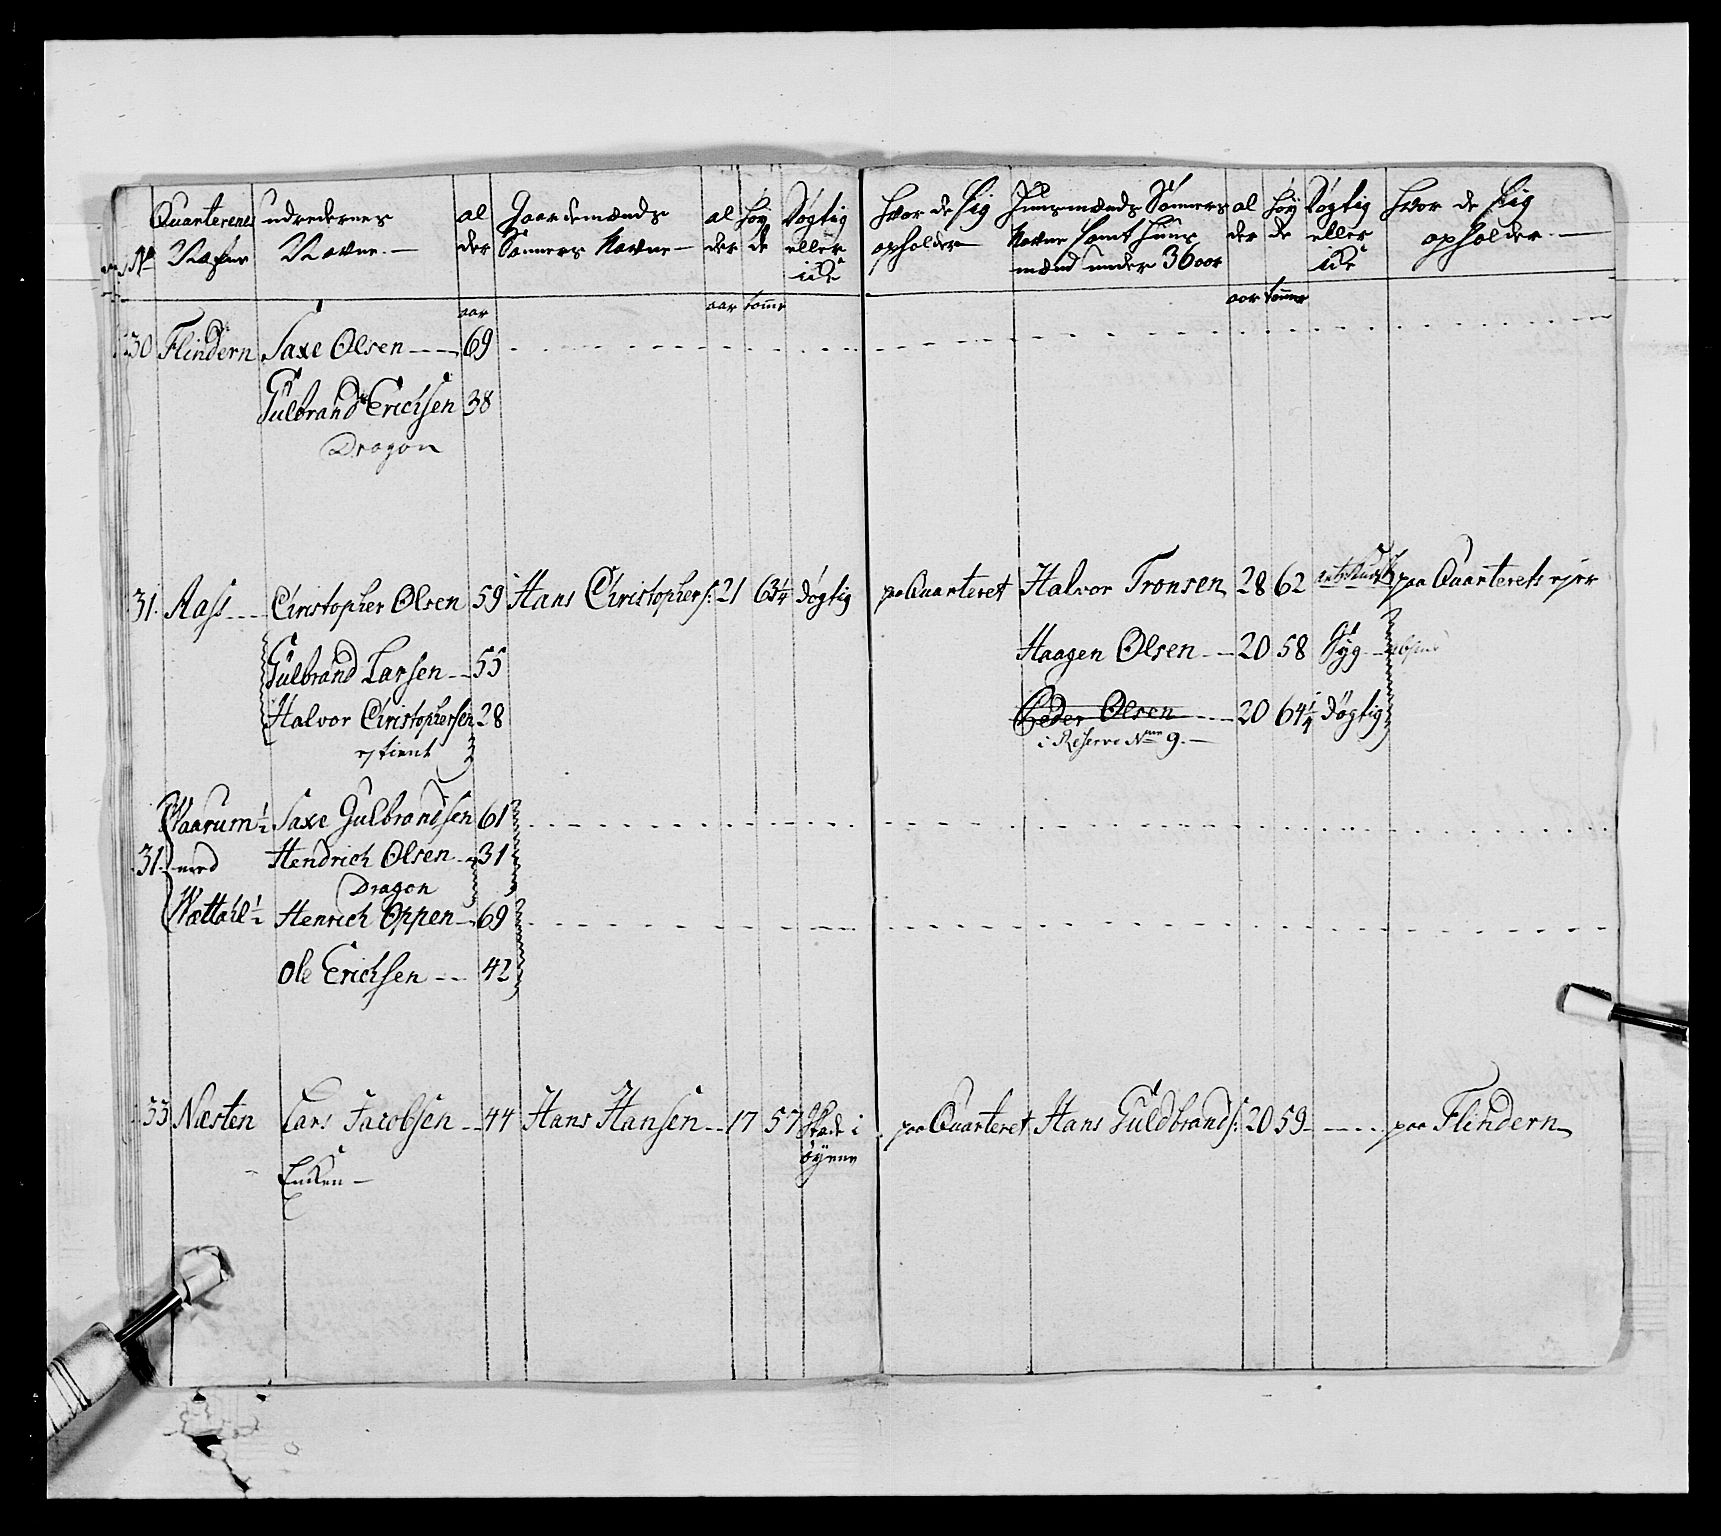 No Quarterenes Nafne udredernes Navne al der Gaardemænds Sønners Navne al der høy de Døgtig eller icke hvor de sig opholder Huusmænds Sønners Navne samt Huus mænd under 36 aar al der høy de Døgtig eller icke hvor de sig opholder
aar aar tomme aar tomme
30 Flindern Saxe Olsen 69
Gulbrand Erichsen 38
Dragon
31. Aass Christopher Olsen 59 Hans Christophers: 21 63 1/4 døgtig paa Quarteret Halvor Tronsen 28 62 paa Quarterets eyer
Gulbrand Larsen 55 Haagen Olsen 20 58 Syg
Halvor Christophersen 28 Peder Olsen 20 64 1/4 døgtig
i Reserve Nmr 9.
Waarum 1/2 Saxe Gulbrandsen 61
31. med Hendrich Olsen 31
Dragon
Wættahl 1/2 Henrich Oppen 69
Ole Erichsen 42
33 Næsten Lars Jacobsen 44 Hans Hansen 17 57 Skade i paa Quarteret Hans Guldbrands: 20 59 paa Flindern
Enken øynene